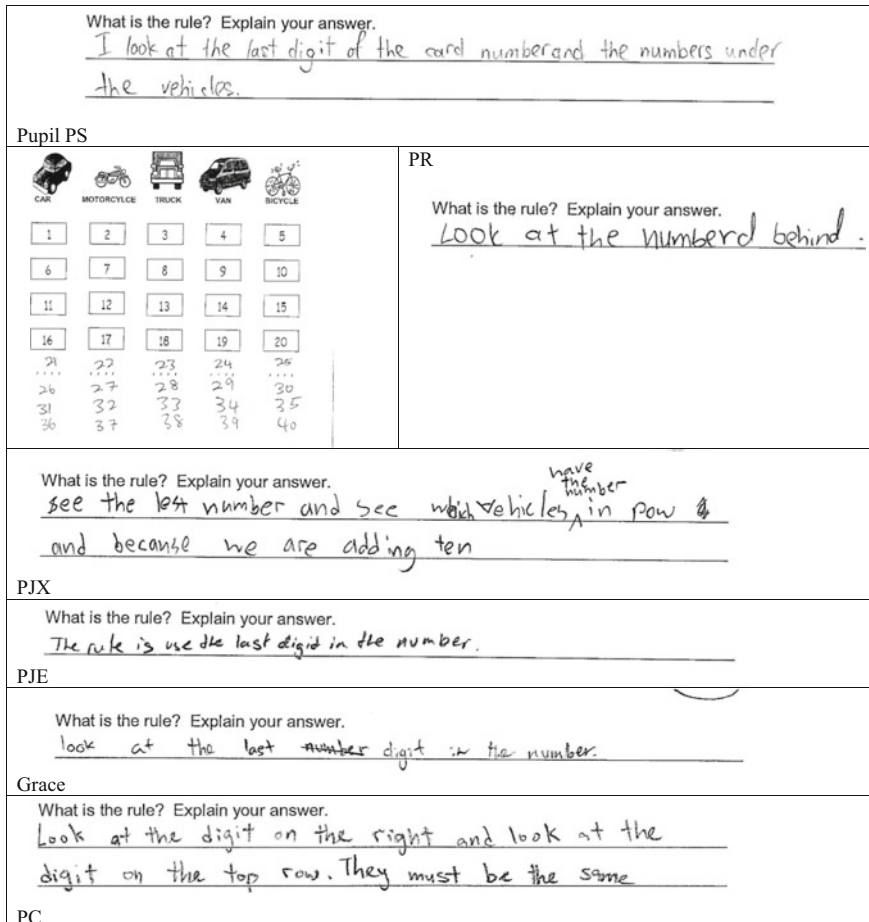 What is the rule? Explain your answer.
I look at the last digit of the card number and the numbers under
the vehicles.
Pupil PS
CAR MOTORCYLCE TRUCK VAN BICYCLE
1 2 3 4 5
6 7 8 9 10
11 12 13 14 15
16 17 18 19 20
21 22 23 24 25
.... .... .... .... ....
26 27 28 29 30
31 32 33 34 35
36 37 38 39 40
PR
What is the rule? Explain your answer.
Look at the numberd behind.
What is the rule? Explain your answer.
have
the
number
see the number and see which vehicles in row
and because we are adding ten
PJX
What is the rule? Explain your answer.
The rule is use the last digid in the number.
PJE
What is the rule? Explain your answer.
look at the last number digit in the number.
Grace
What is the rule? Explain your answer.
Look at the digit on the right and look at the
digit on the top row. They must be the same
PC